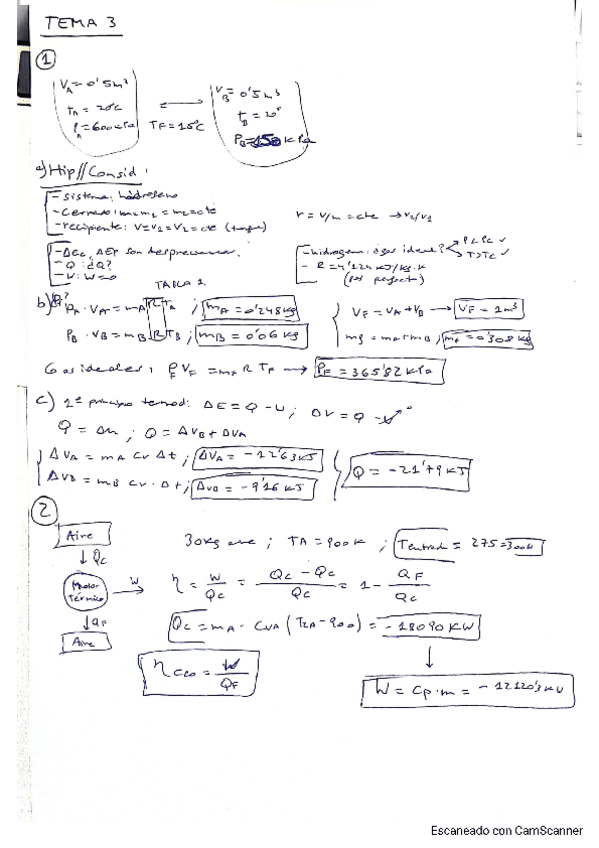 TEMA 3
1
VA = 0'5 m³
tA = 20ºC
PA = 600 kPa
TF = 15ºC
VB = 0'5 m³
tB = 30º
PB = 150 kPa
a) Hip//Consid:
- sistema: hidrógeno
- cerrado: m1 = m2 = cte
- recipiente: V = V1 = V2 = cte (tanque)
r = V/m = cte → v2/v1
- ΔEc, ΔEP son despreciables.
- Q: ¿Q?
- W: W = 0
- hidrógeno: ¿gas ideal? P<Pc ✓ T>Tc ✓
- R = 4'124 kJ/kg·K
(gas perfecto)
TABLA 1.
b) PF?
PA · VA = mA R TA ; mA = 0'248 kg
PB · VB = mB R TB ; mB = 0'06 kg
VF = VA + VB → VF = 1 m³
mF = mA + mB ; mF = 0'308 kg
Gas ideales: PF VF = mF R TF → PF = 365'82 kPa
c) 1er principio termod: ΔE = Q - W ; ΔU = Q - W 0
Q = ΔU ; Q = ΔUB + ΔUA
ΔUA = mA cv Δt ; ΔUA = -12'63 kJ
ΔUB = mB cv · Δt ; ΔUB = -9'16 kJ
Q = -21'79 kJ
2
Aire
↓ QC
Motor
Térmico
→ W
↓ QF
Aire
30 kg aire ; TA = 900 K ; Tentrada = 275 = 300K
η = W/QC = QC - QC/QC = 1 - QF/QC
QC = mA · CVA (T2A - 900) = -18090 KW
η CCO = W/QF
W = Cp · m = -12120'3 KW
Escaneado con CamScanner